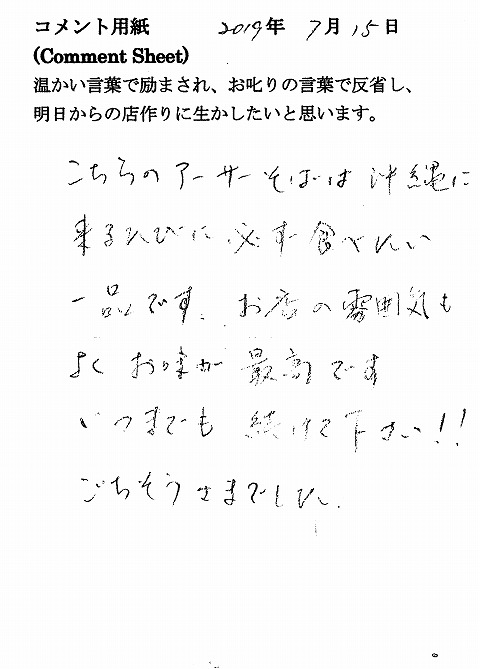 コメント用紙 2019年 7月 15日
(Comment Sheet)
温かい言葉で励まされ、お叱りの言葉で反省し、
明日からの店作りに生かしたいと思います。
こちらのアーサーそばは 沖縄に
来るたびに 必ず食べたい
一品です。お店の雰囲気も
よく お味が 最高です
いつまでも 続けて下さい!!
ごちそうさまでした。